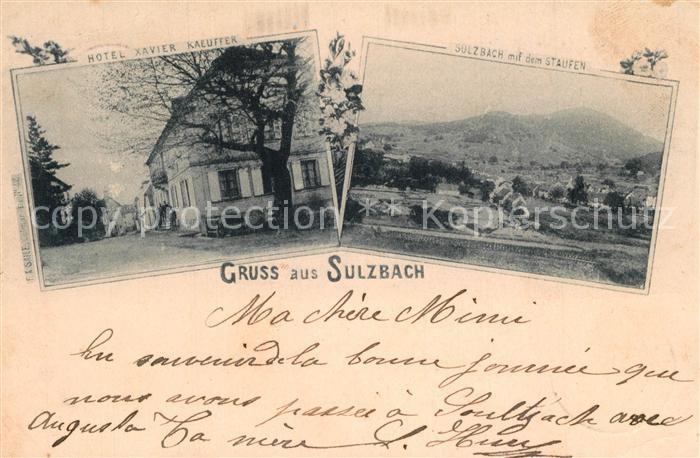 HOTEL XAVIER KAEUFFER
SULZBACH mit dem STAUFEN
copy protection ** Kopierschutz
GRUSS aus SULZBACH
Ma chère Mimi
En souvenir de la bonne journée que
nous avons passée à Soultzbach avec
Augusta Ta mère